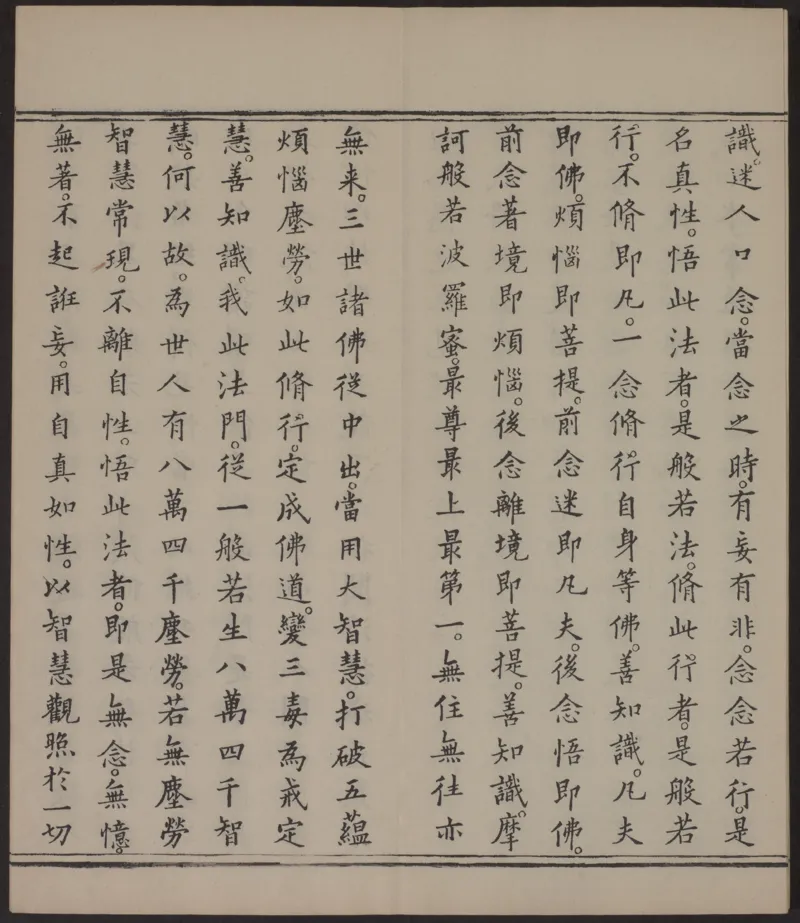 識。迷人口念。當念之時。有妄有非。念念若行。是
名真性。悟此法者。是般若法。脩此行者。是般若
行。不脩即凡。一念脩行。自身等佛。善知識。凡夫
即佛。煩惱即菩提。前念迷即凡夫。後念悟即佛。
前念著境即煩惱。後念離境即菩提。善知識。摩
訶般若波羅蜜。最尊最上最第一。無住無往亦
無来。三世諸佛從中出。當用大智慧。打破五蘊
煩惱塵勞。如此脩行。定成佛道。變三毒為戒定
慧。善知識。我此法門。從一般若生八萬四千智
慧。何以故。為世人有八萬四千塵勞。若無塵勞
智慧常現。不離自性。悟此法者。即是無念。無憶。
無著。不起誑妄。用自真如性。以智慧觀照於一切